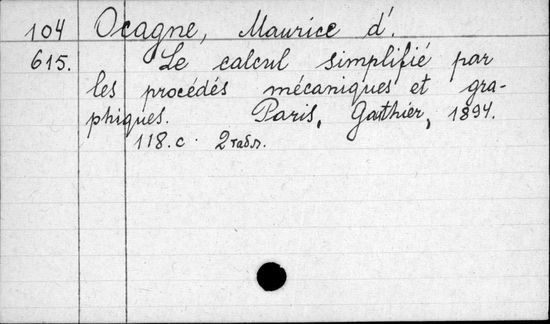 104 Ocagne, Maurice d'.
615. Le calcul simplifié par
les procédés mécaniques et gra-
phiques. Paris, Gauthier, 1894.
118.с. 2 табл.